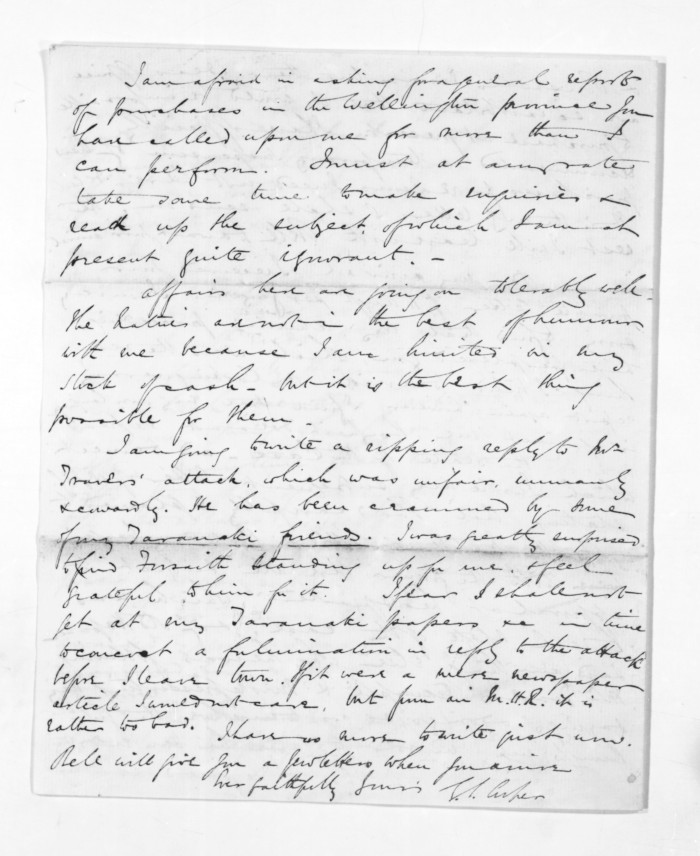 I am afraid in asking for a general report
of purchases in the Wellington province you
have called upon me for more than I
can perform. I must at any rate
take some time to make enquiries &
read up the subject of which I am at
present quite ignorant. —
Affairs here are going on tolerably well.
The Natives are not in the best of humour
with me because I am limited in my
stock of cash — but it is the best thing
possible for them —
I am going to write a ripping reply to Mr
Travers' attack, which was unfair, unmanly
& cowardly. He has been crammed by some
of my Taranaki friends. I was greatly surprised
to find Forsaith standing up for me, & feel
grateful to him for it. I fear I shall not
get at my Taranaki papers &c in time
to concoct a fulmination in reply to the attack
before I leave town. If it were a mere newspaper
article I would not care, but from an M.H.R. it is
rather too bad. I have no more to write just now.
Bell will give you a few letters when you arrive
Ever faithfully Yours G.S. Cooper